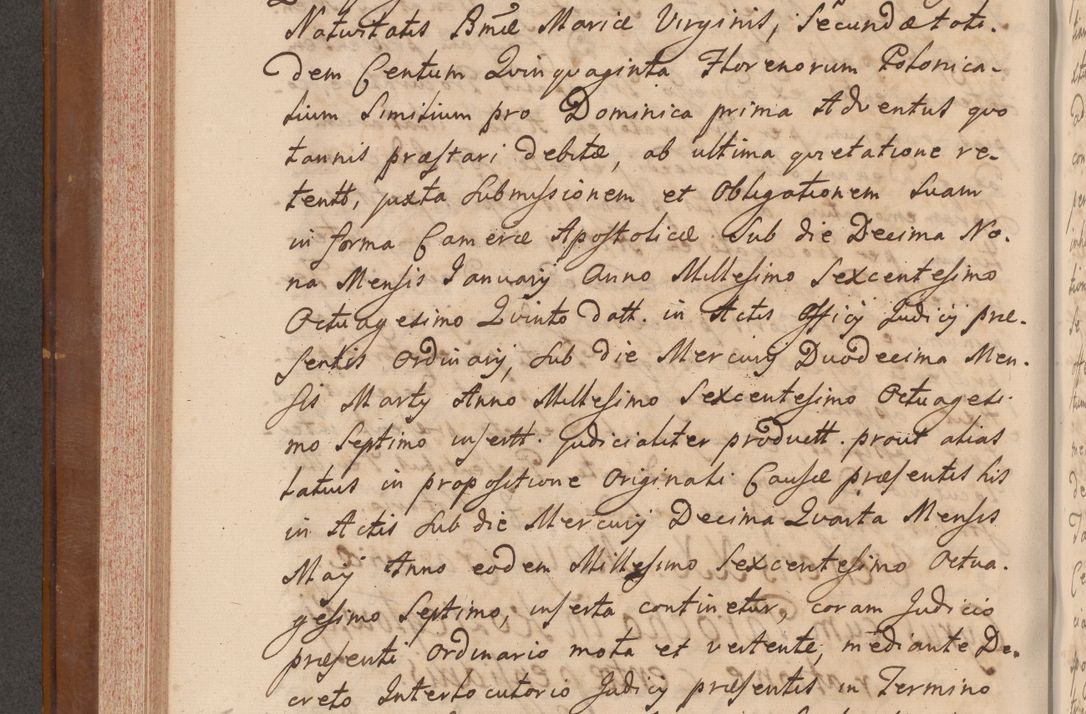 Nativitatis Bmæ Mariæ Virginis, Secundæ toti-
dem Centum Qvinqvaginta Florenorum Polonica-
lium Similium pro Dominica prima Adventus qvo
tannis præstari debitæ, ab ultima qvietatione re-
tentt, juxta Submissionem et Obligationem Suam
in forma Cameræ Apostolicæ Sub die Decima No-
na Mensis Januarij Anno Millesimo Sexcentesimo
Octuagesimo Qvinto datt. in Actis Officij Judicij præ-
sentis Ordinarij, Sub die Mercurij Duodecima Men-
sis Martij Anno Millesimo Sexcentesimo Octuagesi-
mo Septimo insertt. Judicialiter productt. prout alias
latius in propositione Originali Causæ præsentis his
in Actis Sub die Mercurij Decima Qvarta Mensis
Maij Anno eodem Millesimo Sexcentesimo Octua-
gesimo Septimo, inserta continetur, coram Judicio
præsenti Ordinario mota et vertente, mediante De-
creto Interlocutorio Judicij præsentis in Termino